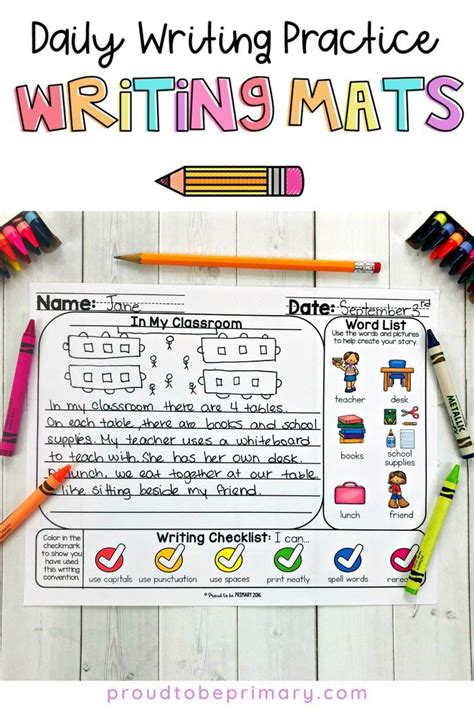 Daily Writing Practice
WRITING MATS
Name: Jane
Date: September 3rd
In My Classroom
Word List
Use the words and pictures
to help create your story.
teacher desk
books school
supplies
lunch friend
In my classroom there are 4 tables.
On each table, there are books and school
supplies. My teacher uses a whiteboard
to teach with. She has her own desk.
lunch, we eat together at our table
like sitting beside my friend.
Color in the
checkmark
to show you
have used
this writing
convention.
Writing Checklist: I can...
use capitals use punctuation use spaces print neatly spell words
© Proud to be PRIMARY 2016
METALLIC
proudtobeprimary.com